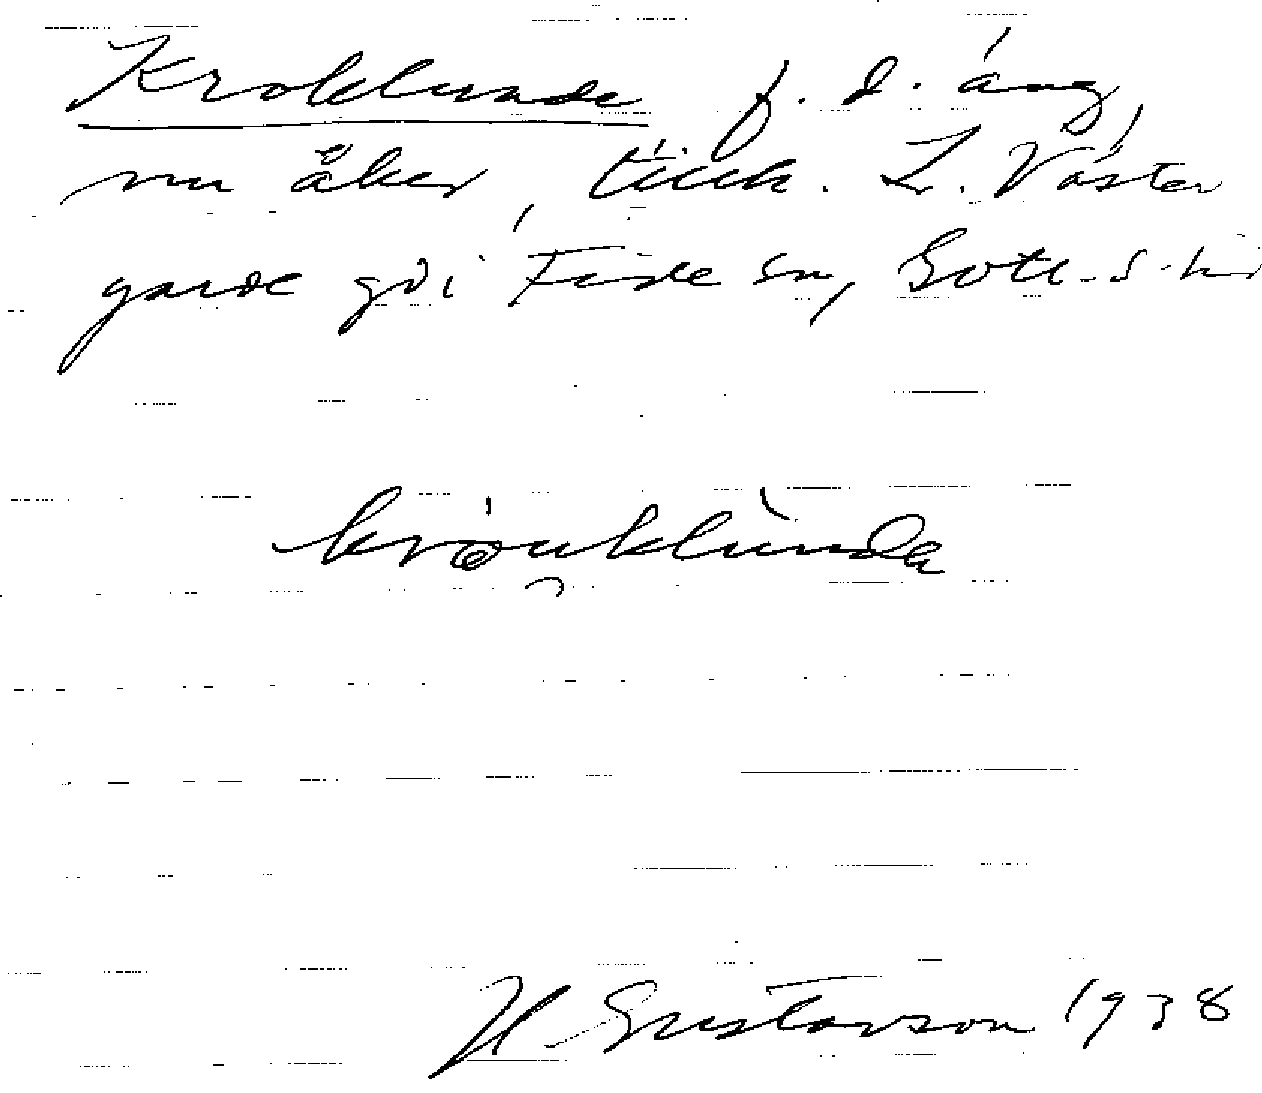 Kroklunde f. d. äng,
nu åker, tillh. L. Väster
garde gd i Fide sn, Gotl. s. hd
kråu̯klùnda
H Gustavson 1938